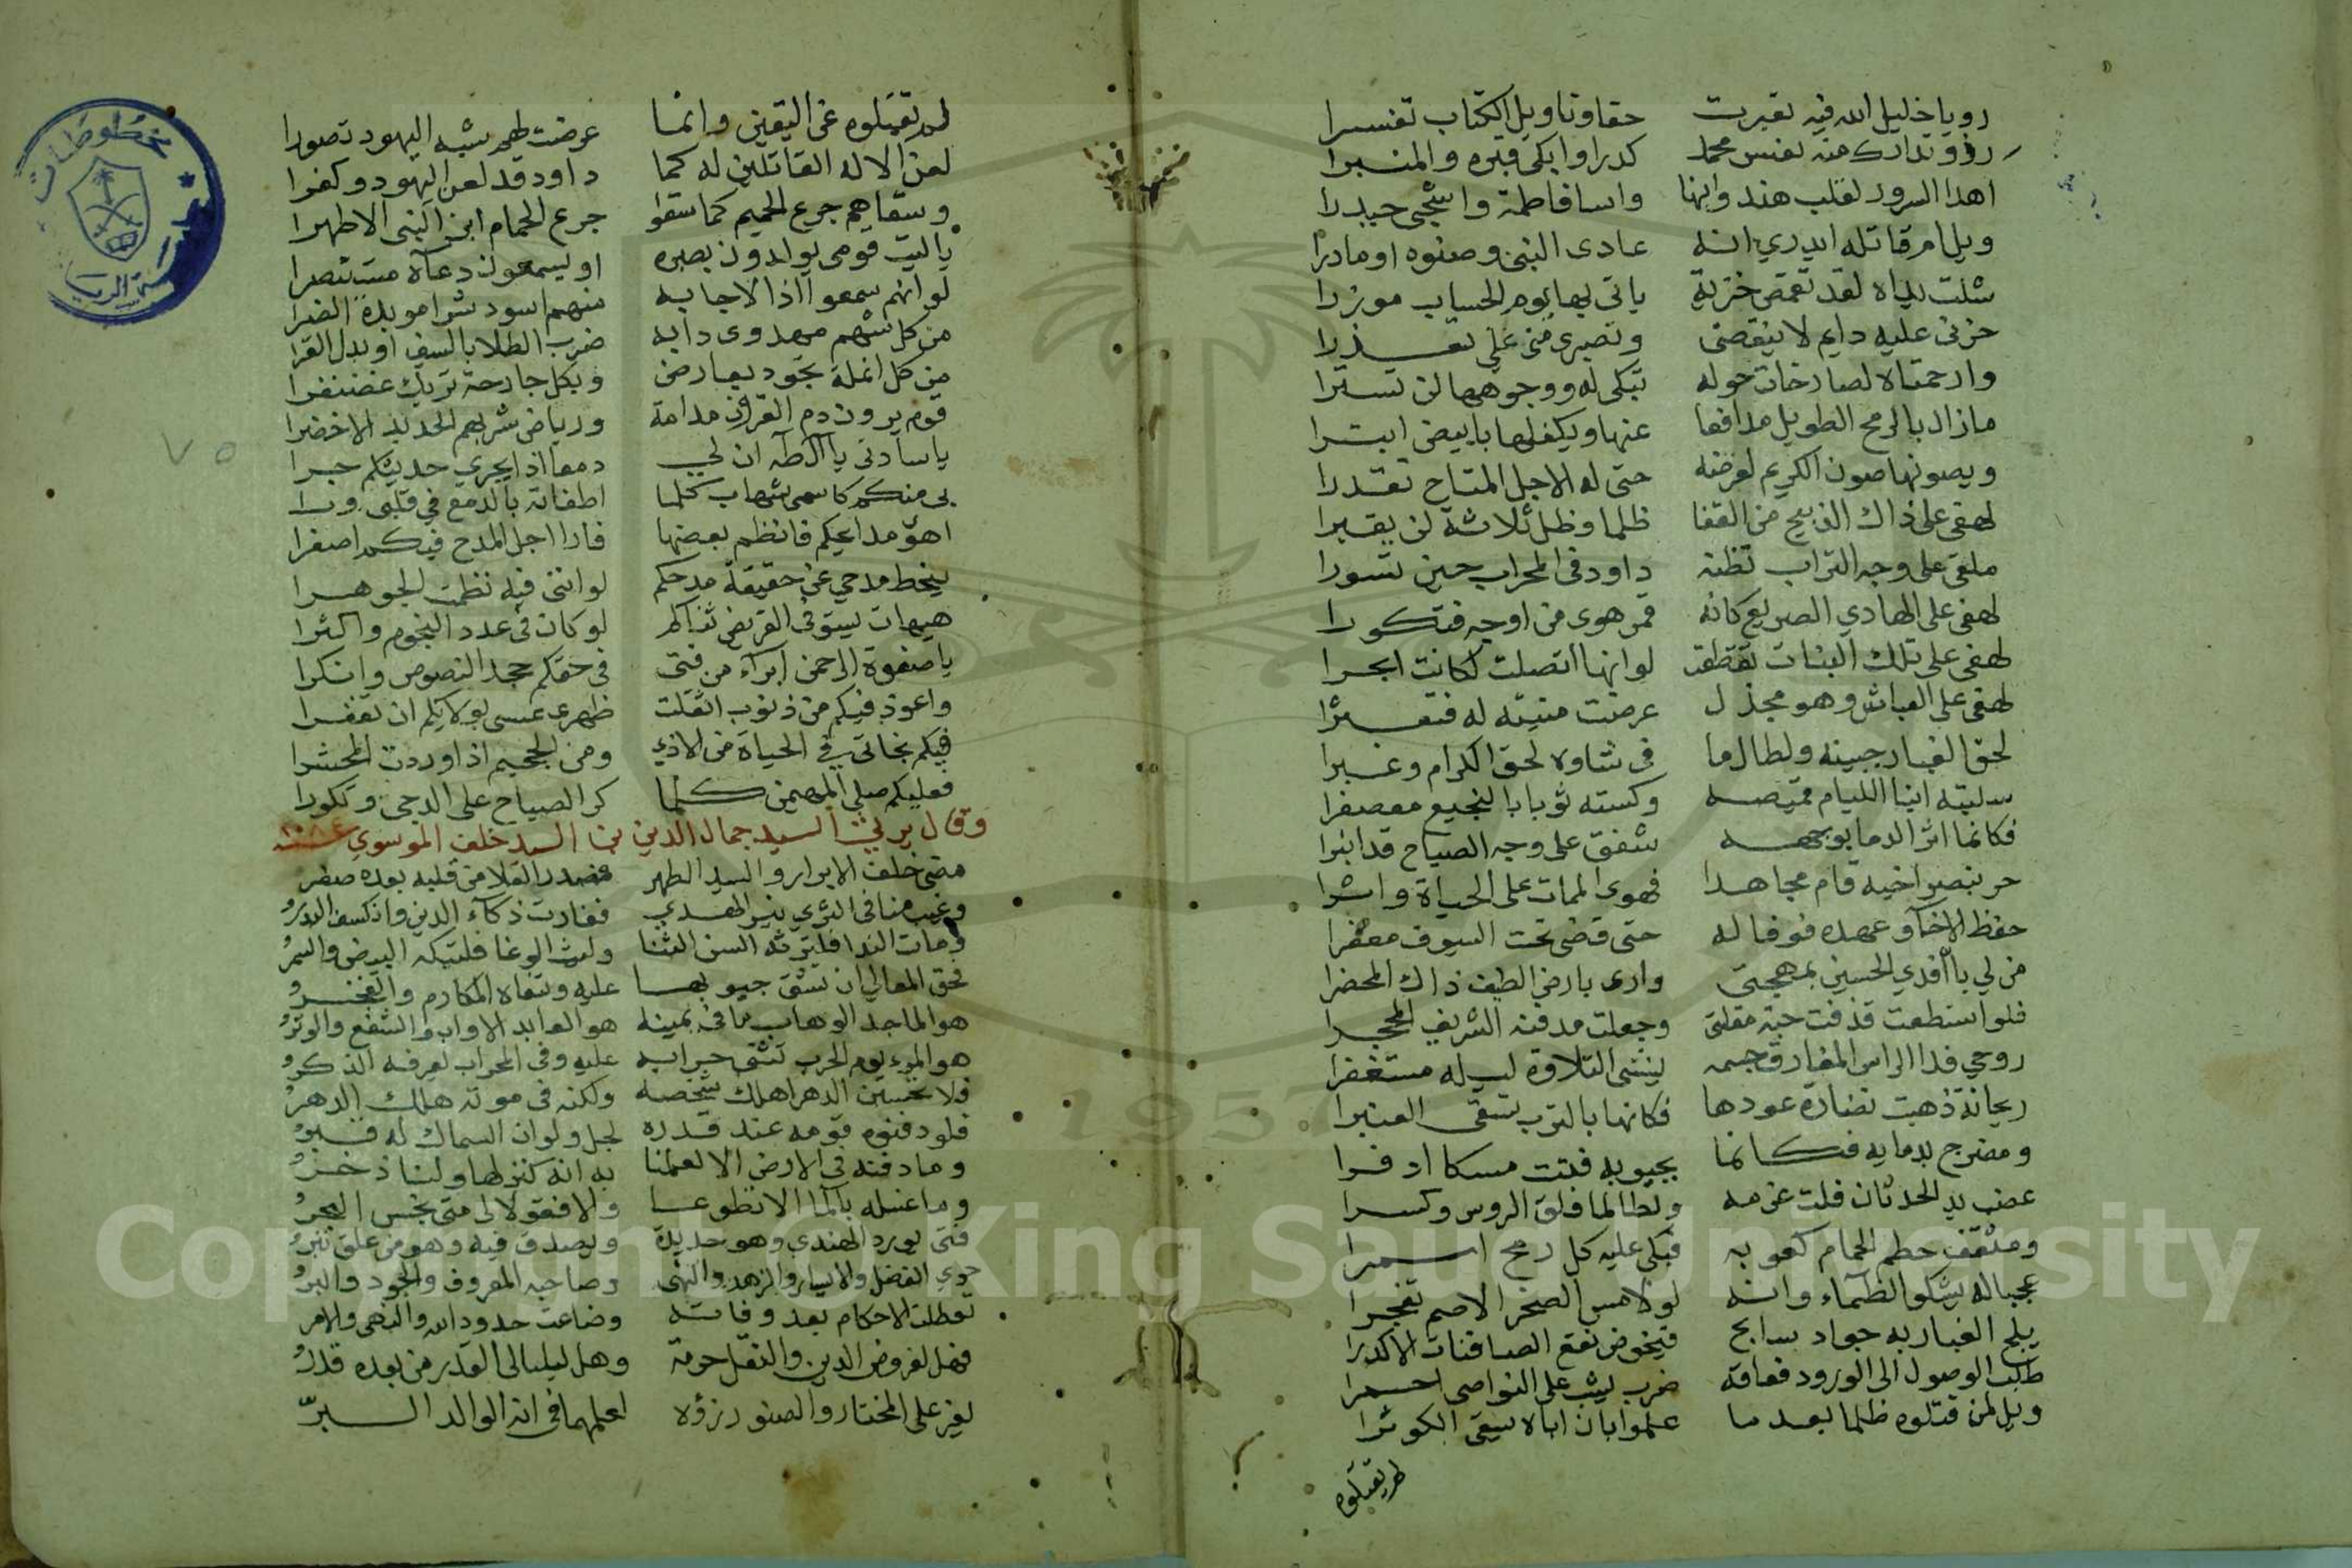 رويا خليل الله فيه تعبرت حقا وتاويل الكتاب تفسرا
رزؤ تدارك منه نفس محمد كدرا وابكى قبره والمنبرا
اهدا السرور لقلب هند وابنها واسا فاطمة واشجى حيدرا
ويل ام قاتله ايدري انه عادى النبي وصنوه او ما درا
شلت يداه لقد تقمص خزية ياتي بها يوم الحساب موزرا
حزني عليه دايم لا ينقضي وتصبري مني علي تعذرا
وارحمتاه لصارخات حوله تبكي له ووجوهها لن تسترا
مازال بالرمح الطويل مدافعا عنها ويكفلها بابيض ابترا
ويصونها صون الكريم لعرضه حتى له الاجل المتاح تقدرا
لهفي على ذاك الذبيح من القفا ظلما وظل ثلاثة لن يقبرا
ملقى على وجه التراب تظنه داود في المحراب حين تسورا
لهفي على الهادي الصريع كانه قمر هوى من اوجه فتكورا
لهفي على تلك البنات تقطعت لو انها اتصلت لكانت ابحرا
لهفي على العباس وهو مجدل عرضت منيته له فتعثرا
لحق الغبار جبينه ولطال ما في شاوه لحق الكرام وغبرا
سلبته ابنا الليام قميصه وكسته ثوبا بالنجيع معصفرا
فكانما اثر الدما بوجهه شفق على وجه الصباح قد انبرا
حر بنصر اخيه قام مجاهدا فهوى الممات على الحياة واثرا
حفظ الاخآ وعهده فوفا له حتى قضى تحت السيوف معفرا
من لي بان افدي الحسين بمهجتي وارى بارض الطف ذاك المحضرا
فلو استطعت قذفت حبة مقلتي وجعلت مدفنه الشريف المحجرا
روحي فدا الراس المفارق جسمه ينشي التلاوة ليله مستغفرا
ريحانة ذهبت نضارة عودها فكانها بالترب تسقى العنبرا
ومضرج بدمايه فكانما بجيوبه فتت مسكا اذفرا
عضب يد الحدثان فلت غربه ولطالما فلق الروس وكسرا
ومثقف حطم الحمام كعوبه فبكى عليه كل رمح اسمرا
عجبا له يشكو الظمآء وانه لو لامس الصخر الاصم تفجرا
يلج الغبار به جواد سابح فيخوض نقع الصافنات الاكدرا
طلب الوصول الى الورود فعاقه ضرب يشب على النواصي احمرا
ويل لمن قتلوه ظلما بعد ما علموا بان اباه يسقي الكوثرا
لم تقتلوه
لم يقتلوه على اليقين وانما عرضت لهم شبه اليهود تصورا
لعن الاله القاتلين له كما داود قد لعن اليهود وكفرا
وسقاهم جرع الحميم كما سقوا جرع الحمام ابن النبي الاطهرا
ياليت قومي يولدون بعصره او يسمعون دعآه مستنصرا
لو انهم سمعوا اذا لاجابه منهم اسود شرا مويدة القرا
من كل شهم مهدوي دابه ضرب الطلا بالسيف او بذل القرا
من كل انملة تجود بعارض وبكل جارحة تريك غضنفرا
قوم يرون دم القران مدامة ورياض شربهم الحديد الاخضرا
ياسادتي يا آل طه ان لي دمعا اذا يجري حديثكم جرا
بي منكم كاسمي شهاب كلما اطفاته بالدمع في قلبي ورا
اهوى مدايحكم فانظم بعضها فارا اجل المدح فيكم اصغرا
ينحط مدحي عن حقيقة مدحكم لو انني فيه نظمت الجوهرا
هيهات يستوفي القريض ثناكم لو كان في عدد النجوم واكثرا
يا صفوة الرحمن ابراء من فتى في حقكم جحد النصوص وانكرا
واعوذ فيكم من ذنوب اثقلت ظهري عسى بولايكم ان تغفرا
فبكم نجاتي في الحياة من الاذي ومن الجحيم اذا وردت المحشرا
فعليكم صلي المهيمن كلما كر الصباح على الدجى وتكورا
وقال يرثي السيد جمال الدين بن السيد خلف الموسوي
مضى خلف الابرار والسيد الطهر فصدر العلا من قلبه بعده صفر
وغيب منا في الثرى نير الهدي فغارت ذكآء الدين وانكسف البدر
ومات الندا فليرثه السن الثنا وليث الوغا فلتبكه البيض والسمر
فحق المعالي ان تشق جيوبها عليه وتنعاه المكارم والفخر
هو الماجد الوهاب ما في يمينه هو العابد الاواب والشفع والوتر
هو المرء يوم الحرب تثني حرابه عليه وفي المحراب يعرفه الذكر
فلا تحسبن الدهر اهلك شخصه ولكنه في موته هلك الدهر
فلو دفنوه قومه عند قدره لجل ولو ان السماك له قبر
وما دفنه في الارض الا لعلمنا به انه كنز لها ولنا ذخر
وما غسله بالما الا تطوعا والا فقولا لي متى نجس البحر
فتى يورد الهندي وهو حديدة ويصدق فيه وهو من علق تبر
حوي الفضل والايثار والزهد والنهى وصاحبه المعروف والجود والبر
تعطلت الاحكام بعد وفاته وضاعت حدود الله والنهى والامر
فهل لفروض الدين والنفل حرمة وهل لليالي القدر من بعده قدر
يعز على المختار والصنو رزؤه لعلمهما في انه الوالد البر